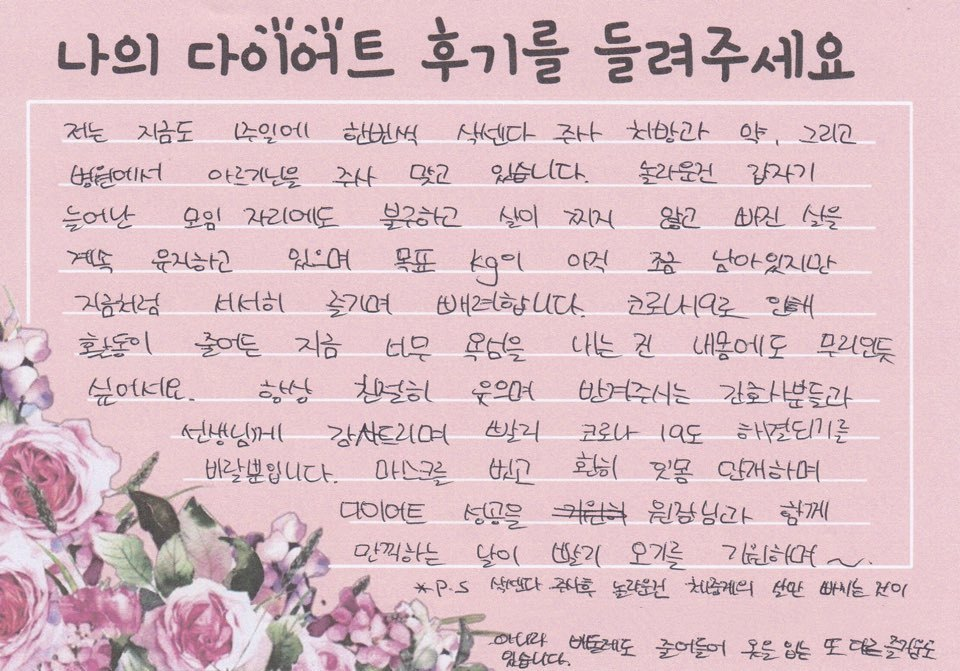 나의 다이어트 후기를 들려주세요
저는 지금도 1주일에 한번씩 삭센다 주사 처방과 약, 그리고
병원에서 아르기닌을 주사 맞고 있습니다. 놀라운건 갑자기
늘어난 모임 자리에도 불구하고 살이 찌지 않고 빠진 살을
계속 유지하고 있으며 목표 kg이 아직 조금 남아있지만
지금처럼 서서히 즐기며 빼려합니다. 코로나19로 인해
활동이 줄어든 지금 너무 욕심을 내는 건 내몸에도 무리인듯
싶어서요. 항상 친절히 웃으며 반겨주시는 간호사분들과
선생님께 감사드리며 빨리 코로나 19도 해결되기를
바랄뿐입니다. 마스크를 벗고 환히 웃을 만개하며
다이어트 성공을 원장님과 함께
만끽하는 날이 빨리 오기를 기원하며~.
*p.s 삭센다 주사후 놀라운건 체중계의 살만 빠지는 것이
아니라 바디도 줄어들어 옷을 입는 또 다른 즐거움도
있습니다.